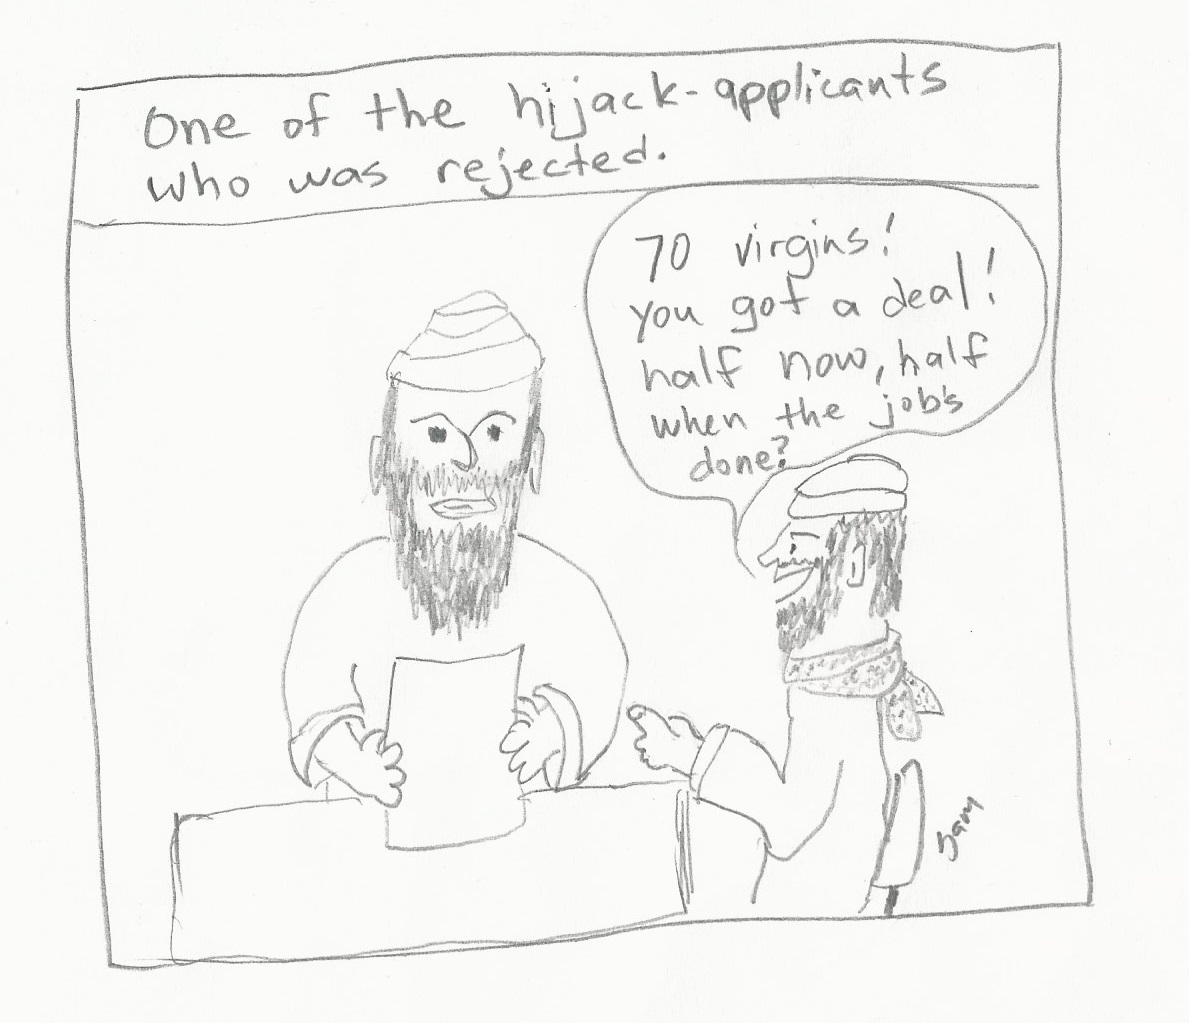 One of the hijack-applicants
who was rejected.
70 virgins!
you got a deal!
half now, half
when the job's
done?